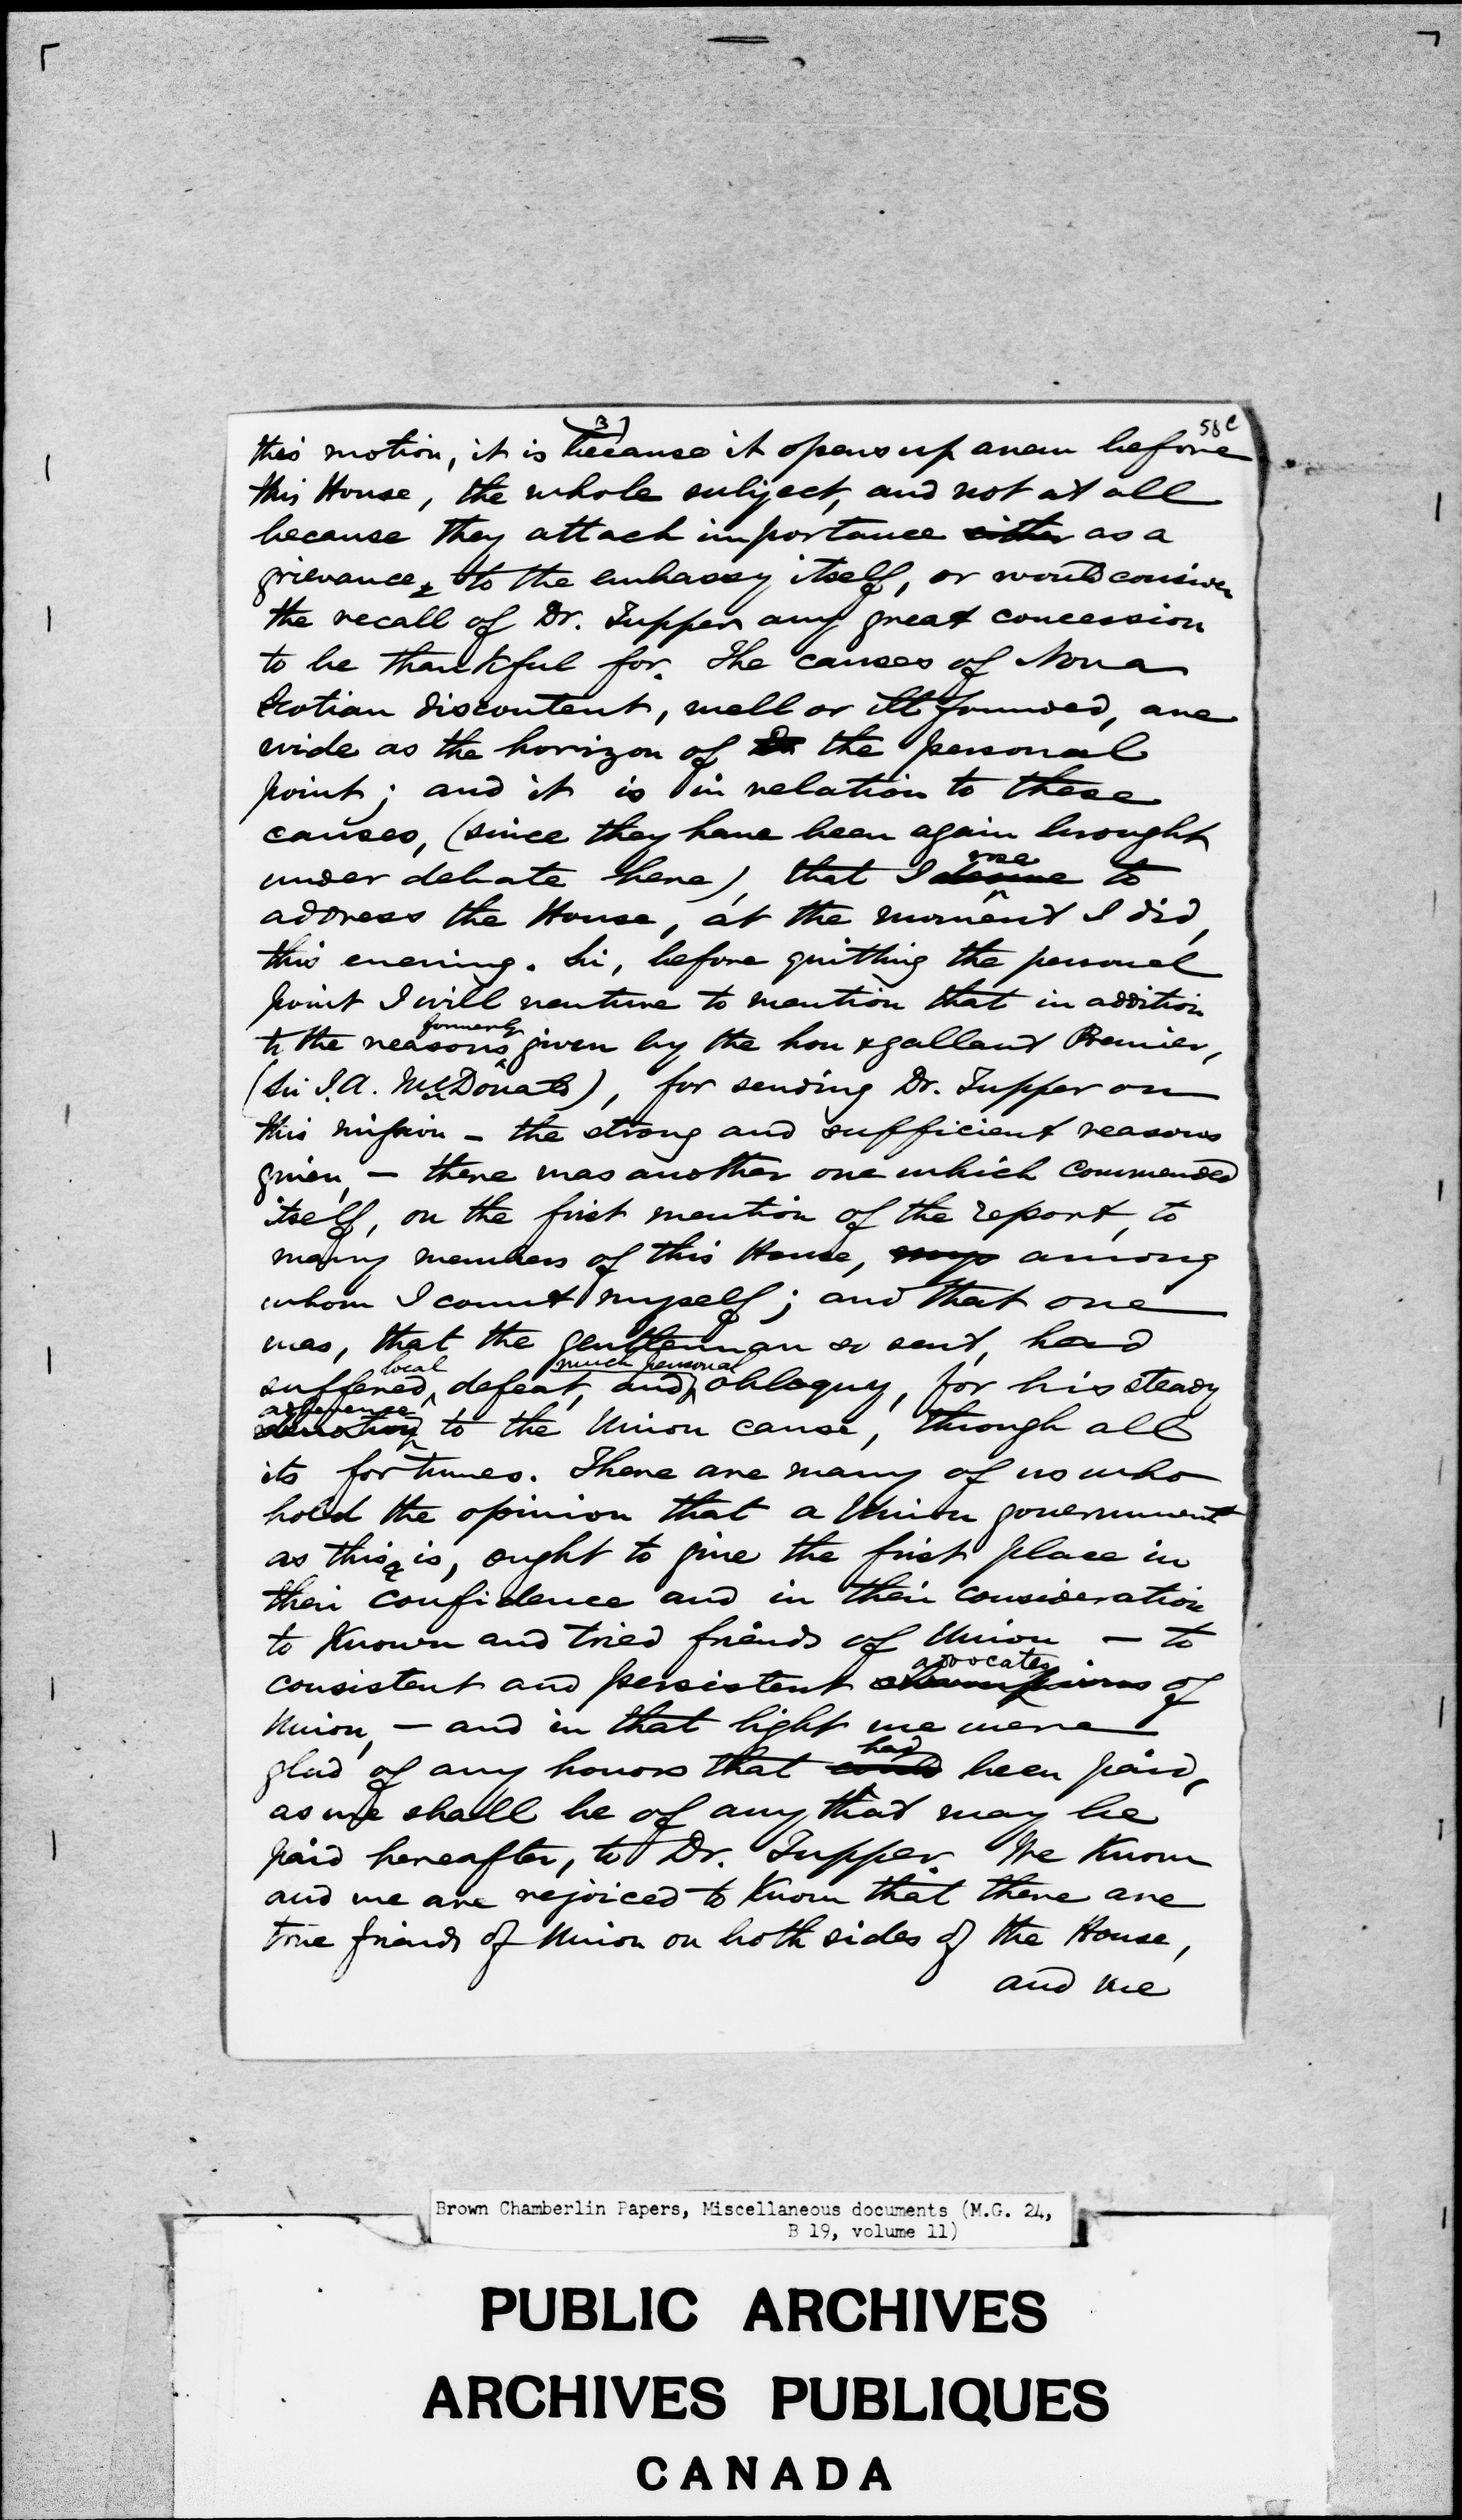 3)
58c
this motion, it is because it opens up anew before
this House, the whole subject, and not at all
because they attach importance either as a
grievance, to the embassy itself, or would consider
the recall of Dr. Tupper any great concession
to be thankful for. The causes of Nova
Scotian discontent, well or ill founded, are
wide as the horizon of the personal
point; and it is in relation to these
causes, (since they have been again brought
under debate here), that I rose to
address the House, at the moment I did,
this evening. Sir, before quitting the personal
point I will venture to mention that in addition
to the reasons formerly given by the hon & gallant Premier,
(Sir J. A. McDonald), for sending Dr. Tupper on
this mission – the strong and sufficient reasons
given, – there was another one which commended
itself, on the first mention of the report, to
many members of this House, among
whom I count myself; and that one
was, that the gentleman so sent, had
suffered local defeat, and much personal obloquy, for his steady
adherence devotion to the Union cause, through all
its fortunes. There are many of us who
hold the opinion that a Union government
as this is, ought to give the first place in
their confidence and in their consideration
to known and tried friends of Union – to
consistent and persistent advocates champions of
Union, – and in that light we were
glad of any honors that had could been paid,
as we shall be of any that may be
paid hereafter, to Dr. Tupper. We know
and we are rejoiced to know that there are
true friends of Union on both sides of the House,
and we
Brown Chamberlin Papers, Miscellaneous documents (M.G. 24,
B 19, volume 11)
PUBLIC ARCHIVES
ARCHIVES PUBLIQUES
CANADA